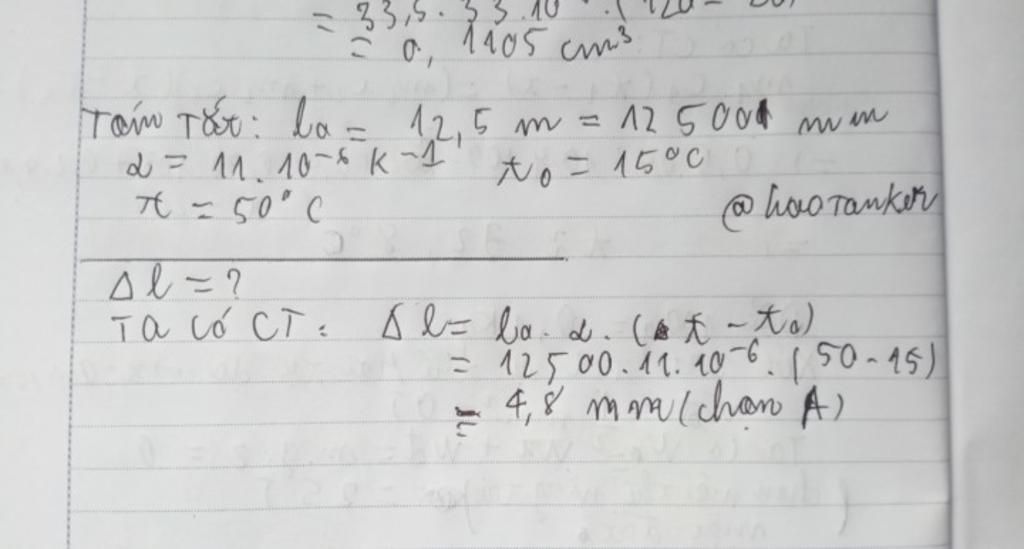 = 33,5. 33.10
= 0,1105 cm³
Tóm Tắt: l₀ = 12,5 m = 12500 mm
α = 11.10⁻⁶ K⁻¹ t₀ = 15°C
t = 50°C
@haoTanker
Δl = ?
TA CÓ CT: Δl = l₀. α. (t - t₀)
= 12500.11.10⁻⁶. (50-15)
= 4,8 mm (chọn A)